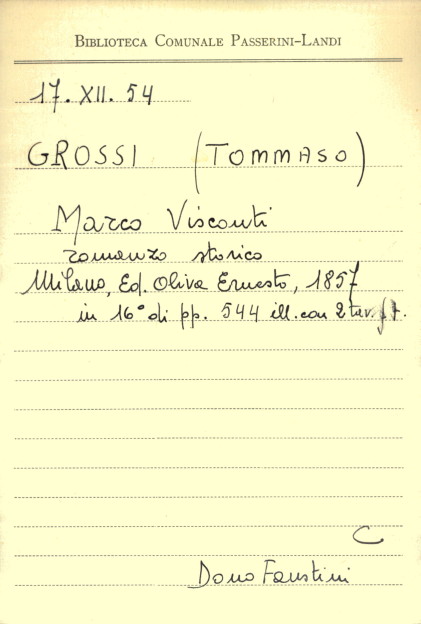 BIBLIOTECA COMUNALE PASSERINI-LANDI
17. XII. 54
GROSSI (TOMMASO)
Marco Visconti
romanzo storico
Milano, Ed. Oliva Ernesto, 1857
in 16° di pp. 544 ill. con 2 tav. f. t.
C
Dono Faustini